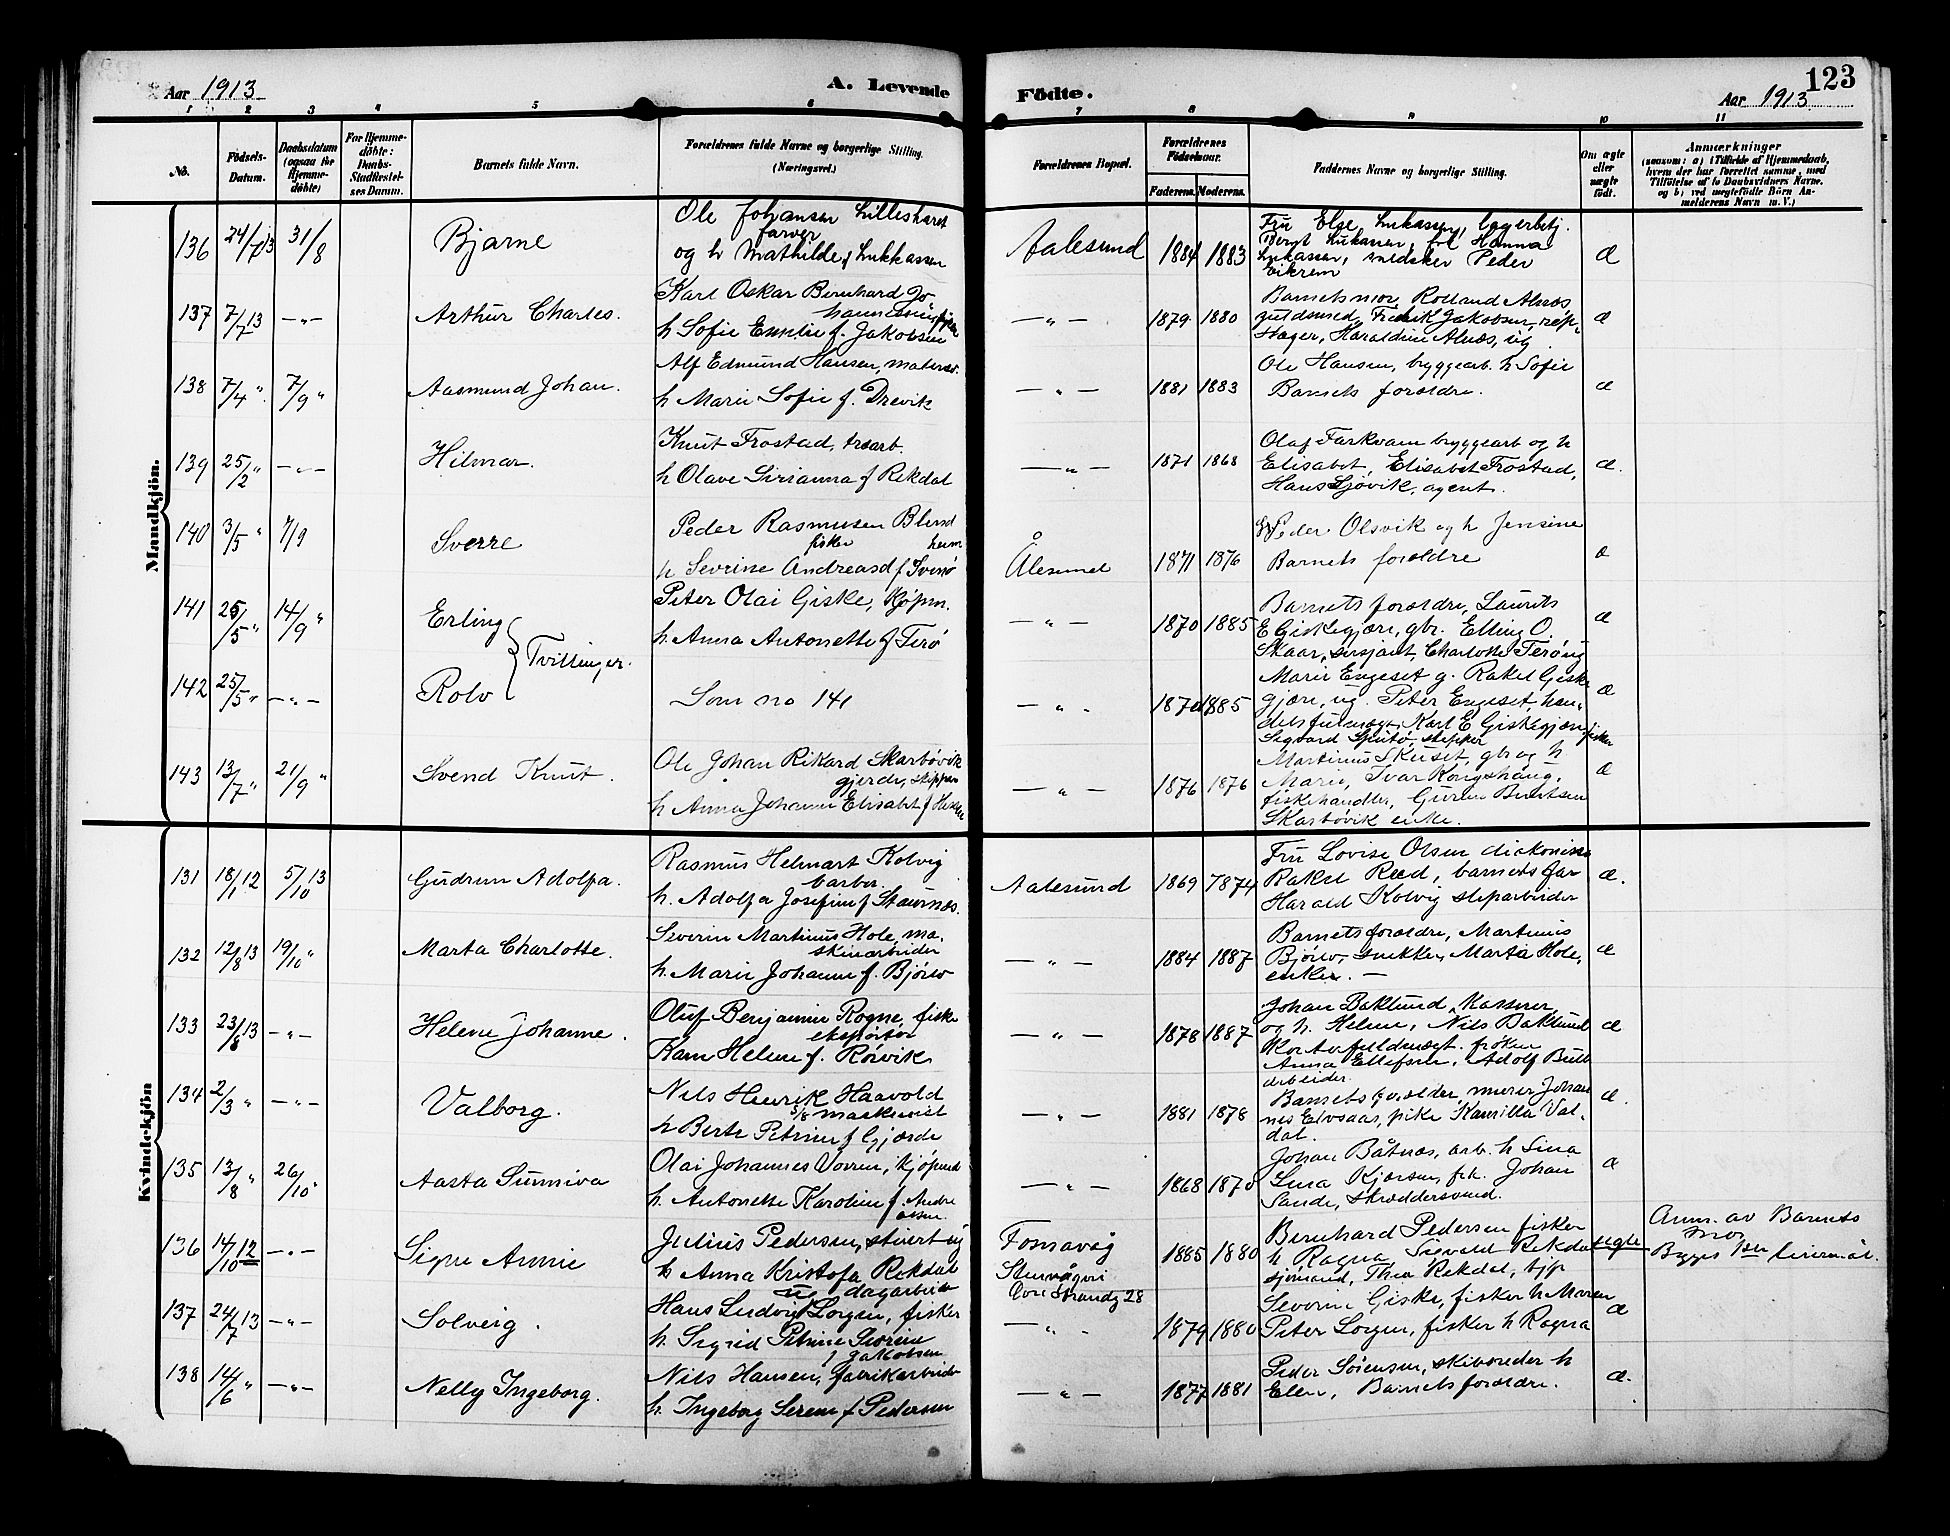 Aar 1913
A. Levende
Födte.
123
Aar 1913
1 2 3 4 5 6 7 8 9 10 11
No.
Födsels-Datum.
Daabsdatum (ogsaa for Hjemme-döbte)
For Hjemme-döbte: Daabs-Stadfæstel-ses Datum.
Barnets fulde Navn.
Forældrenes fulde Navne og borgerlige Stilling. (Næringsvei.)
Forældrenes Bopæl.
Forældrenes Födselsaar.
Faderens. Moderens.
Faddernes Navne og borgerlige Stilling.
Om ægte eller uægte födt.
Anmærkninger
(saasom: a) i Tilfælde af Hjemmedaab, hvem der har forrettet samme, med Tilföielse af to Daabsvidners Navne. og b) ved uægtefödte Börn An-melderens Navn m. V.)
Mandkjön.
136 24/7 13 31/8 Bjarne
Ole Johansen Lilleshæret
farver
og h Mathilde f Lukkassen
Aalesund 1884 1883
Fru Else Lukassen, lagerbetj.
Bernt Lukassen, frk Hanna
Lukassen, snedeker Peder
Vikrem
æ
137 7/7 13 —"— Arthur Charles.
Karl Oskar Bernhard Jo-
hannessen
h Sofie Emelie f. Jakobsen
—"— 1879 1880
Barnets mor, Rolland Alnæs
guldsmed, Fredrik Jakobsen, rep-
slager, Haraldine Alnæs, ug
æ
138 7/4 " 7/9 " Aasmund Johan.
Alf Edmund Hansen,
h Marie Sofie f. Drevik
—"— 1881 1883
Ole Hansen, bryggearb. h Sofie
Barnets forældre.
æ
139 25/2 " —"— Hilmar.
Knut Frostad, træarb.
h Olave Sirianna f Rekdal
—"— 1871 1868
Olaf Farkvam bryggearb og h
Elisabet, Elisabet Frostad,
Hans Sjøvik, agent.
æ.
140 3/5 " 7/9 Sverre
Peder Rasmusen Blind
fisker heim
h Sevrine Andreasd f Svinø
Ålesund 1871 1876
Peder Olsvik og h Jensine
Barnets forældre
æ
141 25/5 " 14/9 " Erling
Tvillinger.
Peter Olai Giske, Kjøpm.
h. Anna Antonette f Terø
—"— 1870 1885
Barnets forældre, Laurits
E Giskegjære, gbr. Elling O.
Skaar, sersjant, Charlotte Terø ug
æ
142 25/5 " —"— Rolv
Som no 141
—"— 1870 1885
Marie Engeset g. Rakel Giske
gjære, ug. Peter Engeset, han-
delsfuldmægt, Karl E Giskegjære fisker
Sigvard skipper
æ
143 13/7 " 21/9 " Svend Knut.
Ole Johan Rikard Skarbøvik
gjerde, skipper
h Anna Johanne Elisabet f
—"— 1876 1876
Martinus Skuset, gbr og h
Marie, Ivar Kongshaug,
fiskehandler, Guren Berntsen
Skarbøvik enke.
æ
Kvindekjön
131 18/1 12 5/10 13 Gudrun Adolfa.
Rasmus Helmart Kolvig
barber
h. Adolfa Josefine f Staurnæs.
Aalesund 1869 1874
Fru Lovise Olsen diakonisse
Rakel Reed, barnets far
Harald Kolvig sliparbeider
æ.
132 12/8 13 19/10 " Marta Charlotte.
Severin Martinus Hole, ma-
skinarbeider
h Marie Johanne f. Bjørlo
—"— 1884 1887
Barnets forældre, Martinius
Bjørlo, snekker, Marta Hole,
enke. —
æ
133 23/8 13 —"— Helene Johanne.
Oluf Benjamin Rogne, fiske
eksportør
Karn Helene f. Rørvik
—"— 1878 1887
Johan Baklund, Kasserer
og h. Helene, Nils Baklund
Kontorfuldmægt. frøken
Anna Ellefsen, Adolf Bull
arbeider.
æ
134 2/3 " —"— Valborg.
Nils Henrik Haavold
S/8 maskinist
h Berte Petrine f Gjærde
—"— 1881 1878
Barnets forælder, murer Johan
nes Elvsaas, pike Kamilla Val-
dal.
æ.
135 13/8 " 26/10 " Aasta Sunniva
Olai Johannes Vovren, Kjøpmd
h. Antonette Karoline f. Andre
assen
—"— 1868 1870
Johan Båtnæs, arb. h Sina
Lina Kjærsen, frk. Johan
Sande, skræddersvend.
æ
136 14/10 12 —"— Signe Annie
Julius Pedersen, stuert ug
h Anna Kristofa Rekdal
ug dagarbeide
Fosnavåg
Øvre Strandg 28
1885 1880
Bernhard Pedersen fisker
h Ragna, Sigvald Rekdal
sjømand, Thea Rekdal, tjp
uegte
Anm. av Barnets
Mor
Begges 1ste leiermål.
137 24/7 13 —"— Solveig.
Hans Ludvig Sorgen, fisker
h. Sigrid Petrine Severine
f Jakobsen
—"— 1879 1880
Severin Giske, fisker h Maren
Peter Sorgen, fisker h Ragna
æ
138 14/6 " —"— Nelly Ingeborg.
Nils Hansen, fabrikarbeider
h. Ingeborg Serene f Pedersen
—"— 1877 1881
Peder Sørensen, skibsreder h
Elen, Barnets forældre.
æ.